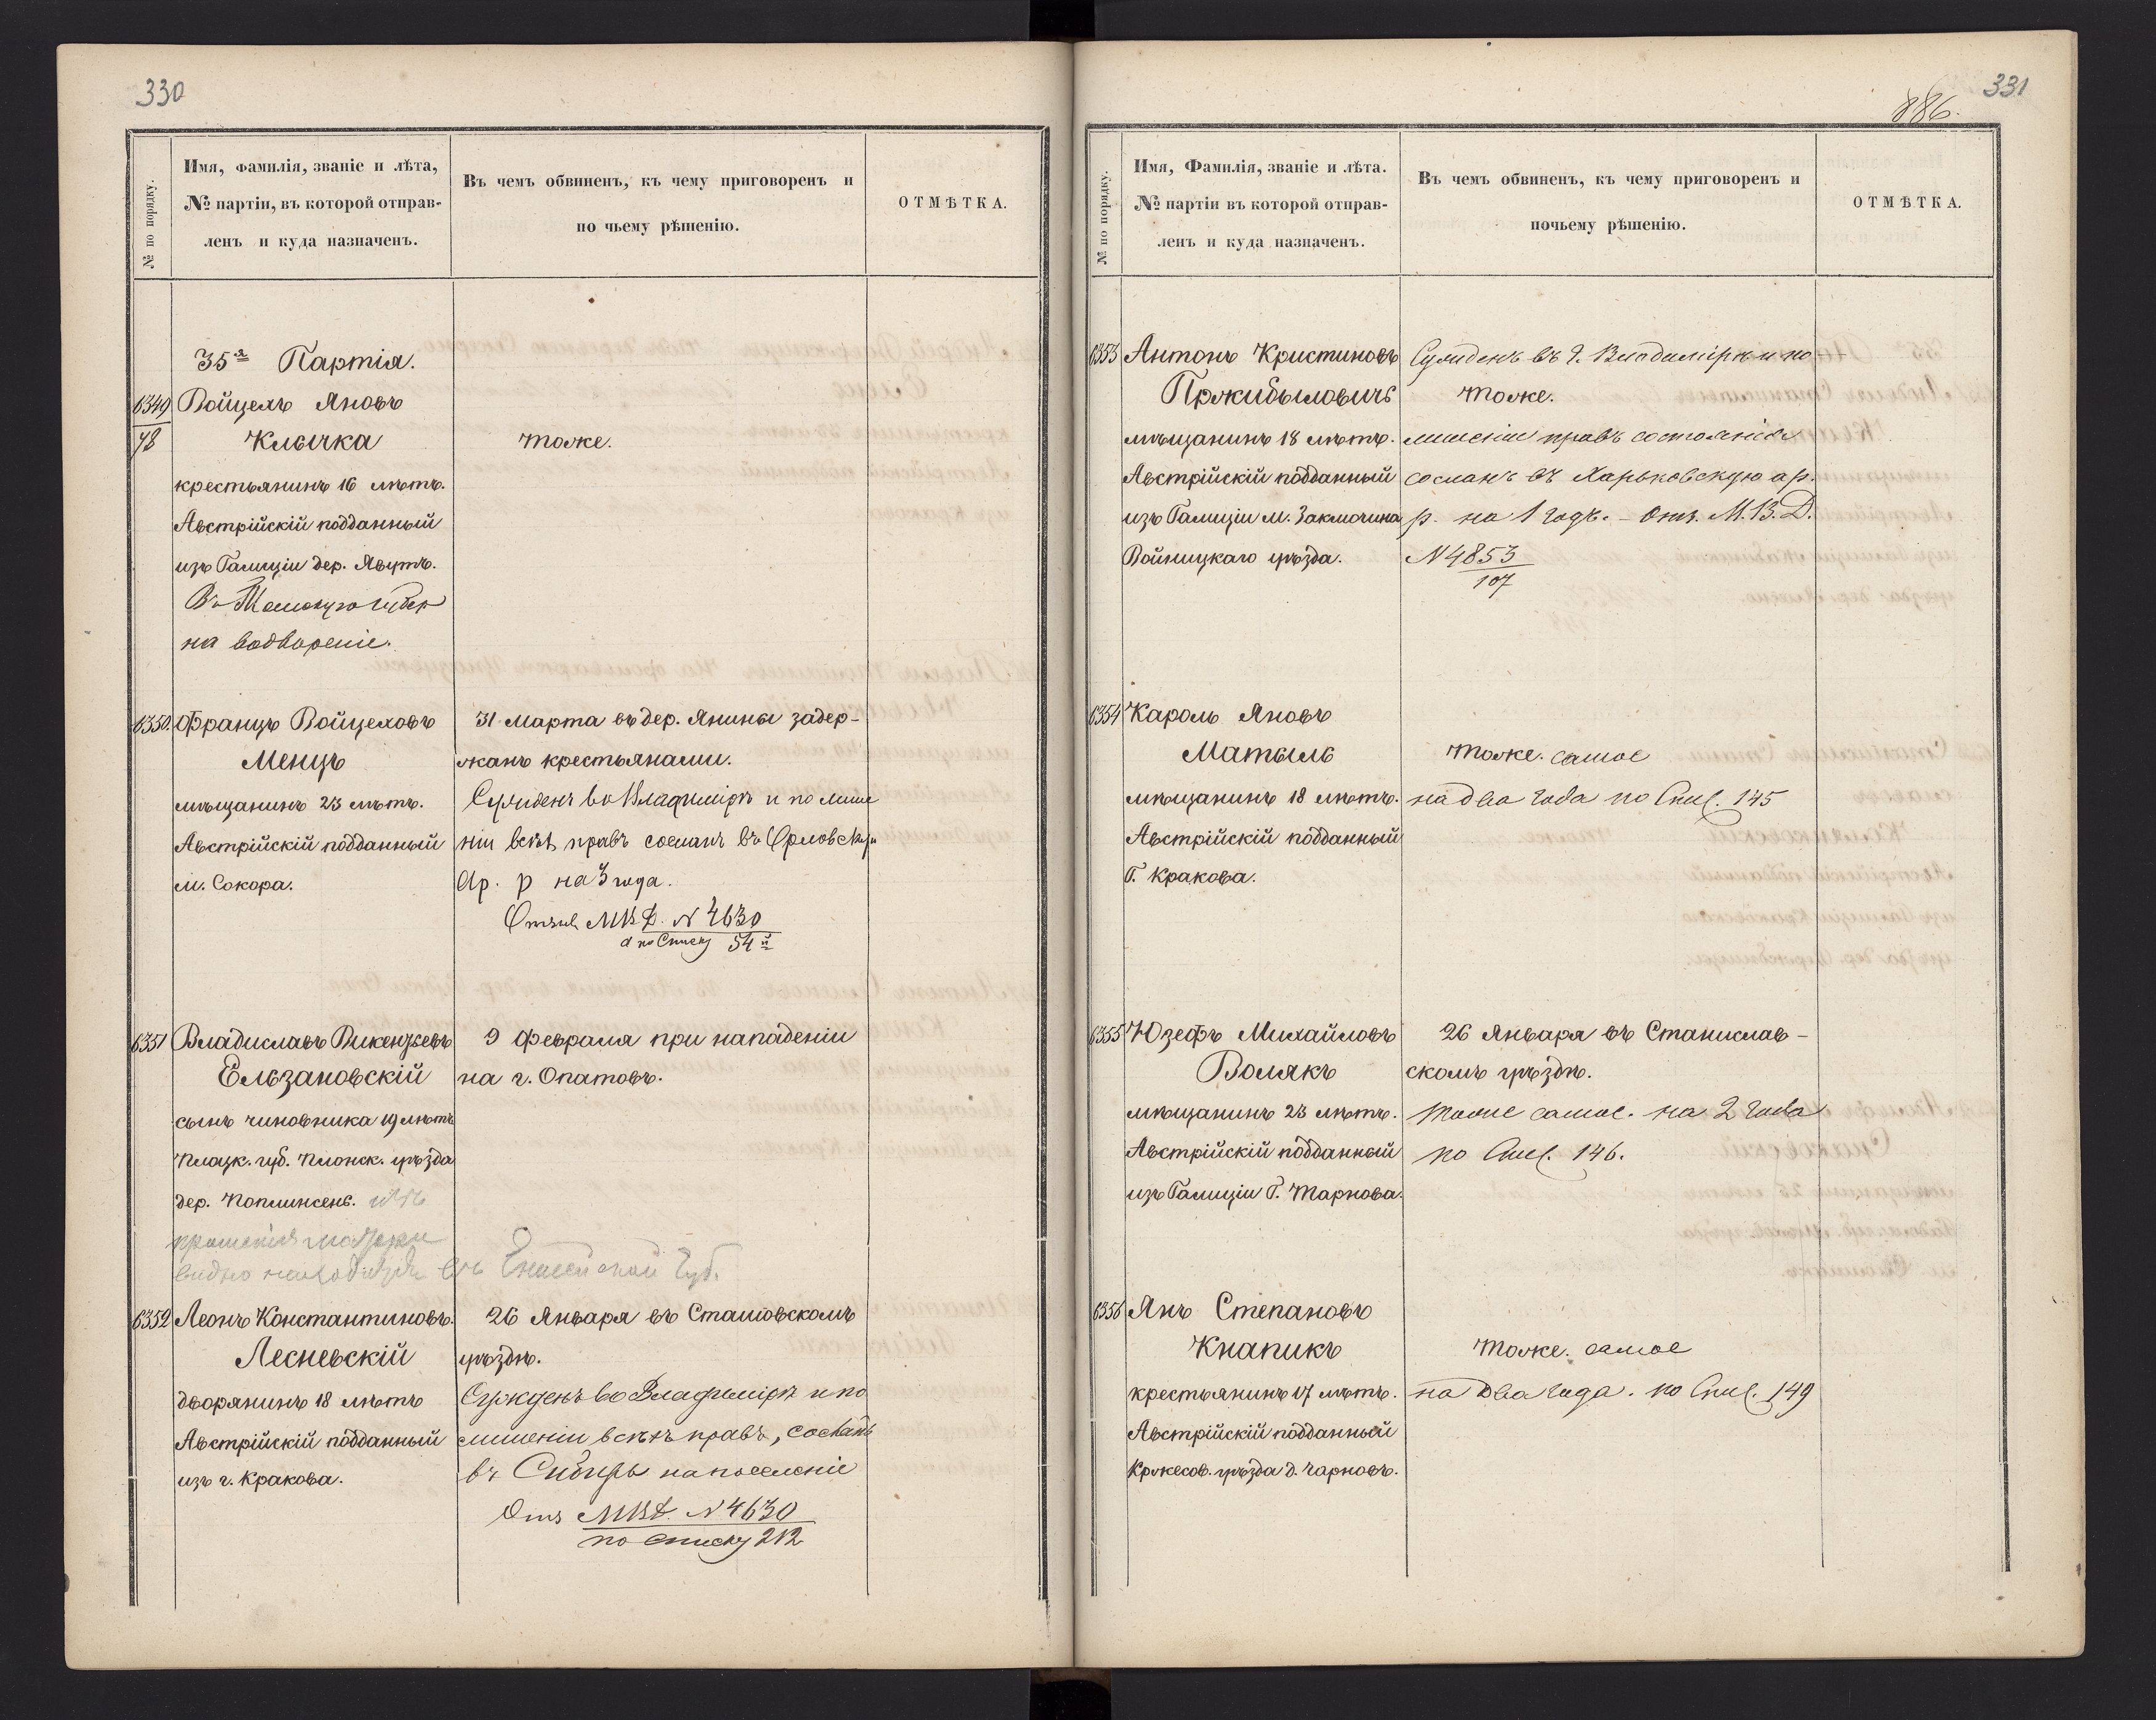 330
№ по порядку.
Имя, фамилія, званіе и лѣта,
№ партіи, въ которой отправ-
ленъ и куда назначенъ.
Въ чемъ обвиненъ, къ чему приговоренъ и
по чьему рѣшенію.
ОТМѢТКА.
35я Партія.
6349
78
Войцехъ Яновъ
Клычка
крестьянинъ 16 лѣтъ.
Австрійскій подданный
изъ Галиціи дер. Явутъ.
Въ Томскую губер
на водвореніе.
тоже.
6350.
Францъ Войцеховъ
Менцъ
мѣщанинъ 23 лѣтъ.
Австрійскій подданный
м. Сокора.
31 Марта въ дер. Янины задер-
жанъ крестьянами.
Сужденъ во Владимірѣ и по лише
ніи всѣхъ правъ сосланъ въ Орловскую
Ар. р на 3 года.
Отзывъ МВД. N 4630
по Списку 54й
6351
Владиславъ Викентьевъ
Ельзановскій
сынъ чиновника 19 лѣтъ
Плоцк. губ. Плонск. уѣзда
дер. Поплинсень. изъ
прошенія матери
видно находится въ Енисейской Губ.
9 Февраля при нападеніи
на г. Опатовъ.
6352
Леонъ Константиновъ.
Лесневскій
дворянинъ 18 лѣтъ
Австрійскій подданный
изъ г. Кракова.
26 Января въ Сташовскомъ
уѣздѣ.
Сужденъ во Владимірѣ и по
лишеніи всѣхъ правъ, сосланъ
въ Сибирь на поселеніе
Отз МВД. N 4630
по списку 212
331
886.
№ по порядку.
Имя, Фамилія, званіе и лѣта.
№ партіи въ которой отправ-
ленъ и куда назначенъ.
Въ чемъ обвиненъ, къ чему приговоренъ и
почьему рѣшенію.
ОТМѢТКА.
6353
Антонъ Кристиновъ
Пржибыловичъ
мѣщанинъ 18 лѣтъ.
Австрійскій подданный
изъ Галиціи м. Заключина
Войницкаго уѣзда.
Сужденъ въ г. Владимірѣ и по
тоже.
лишеніи правъ состоянія
сосланъ въ Харьковскую ар.
р. на 1 годъ. - Отз. М.В.Д.
N 4853
107
6354
Кароль Яновъ
Матыль
мѣщанинъ 18 лѣтъ.
Австрійскій подданный
Г. Кракова.
тоже. самое
на два года по Спис. 145
6355
Юзефъ Михайловъ
Волякъ
мѣщанинъ 23 лѣтъ.
Австрійскій подданный
изъ Галиціи Г. Тарнова.
26 Января въ Станислав-
скомъ уѣздѣ.
тоже самое. на 2 года
по Спис. 146.
6356
Янъ Степановъ
Кнапикъ
крестьянинъ 17 лѣтъ.
Австрійскій подданный
Кржесов. уѣзда д. Чарновъ.
тоже. самое
на два года. по Спис. 149